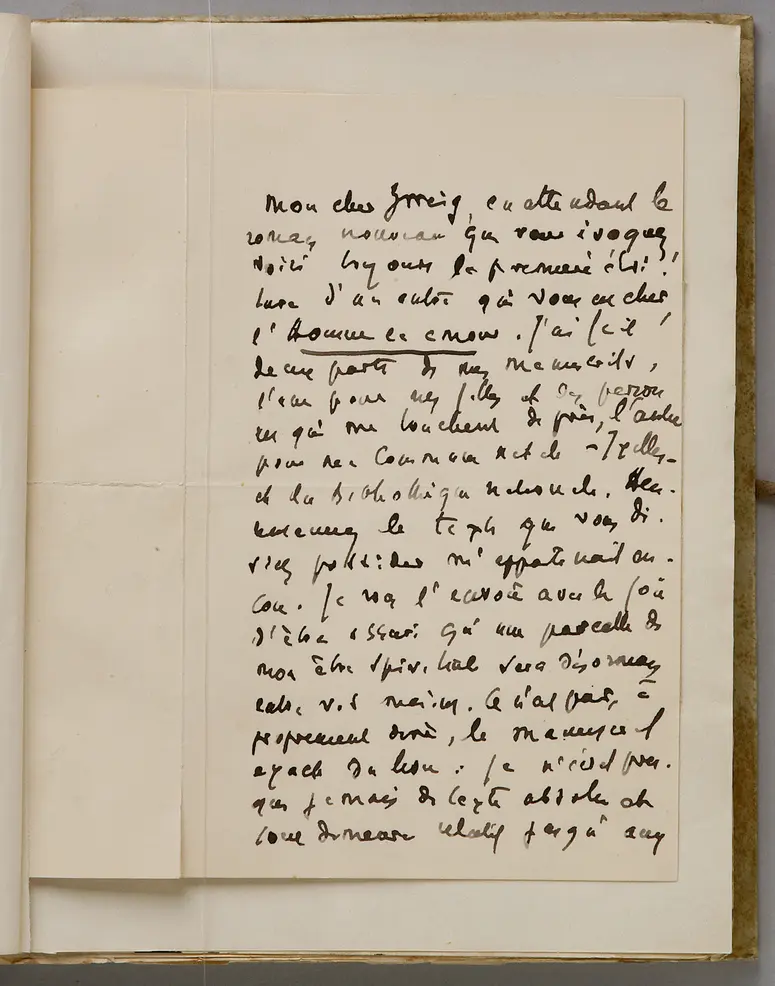 Mon cher Zweig, en attendant le
roman nouveau que vous évoquez
voici toujours la première écri-
ture d'un autre qui vous est cher
l'Homme et
J'ai fait
deux parts de mes manuscrits,
l'un pour mes filles et des person
nes qui me touchent de près, l'autre
pour ma Commune natale - Ixelles -
et la Bibliothèque nationale. Heu-
reusement le texte que vous dé-
siriez posséder m'appartenait en-
core. Je vous l'envoie avec la joie
d'être assuré qu'une parcelle de
mon être spirituel sera désormais
entre vos mains. Ce n'est pas, à
proprement dire, le manuscrit
exact du livre : je n'écris pres-
que jamais de texte absolu et
tout demeure relatif jusqu'aux